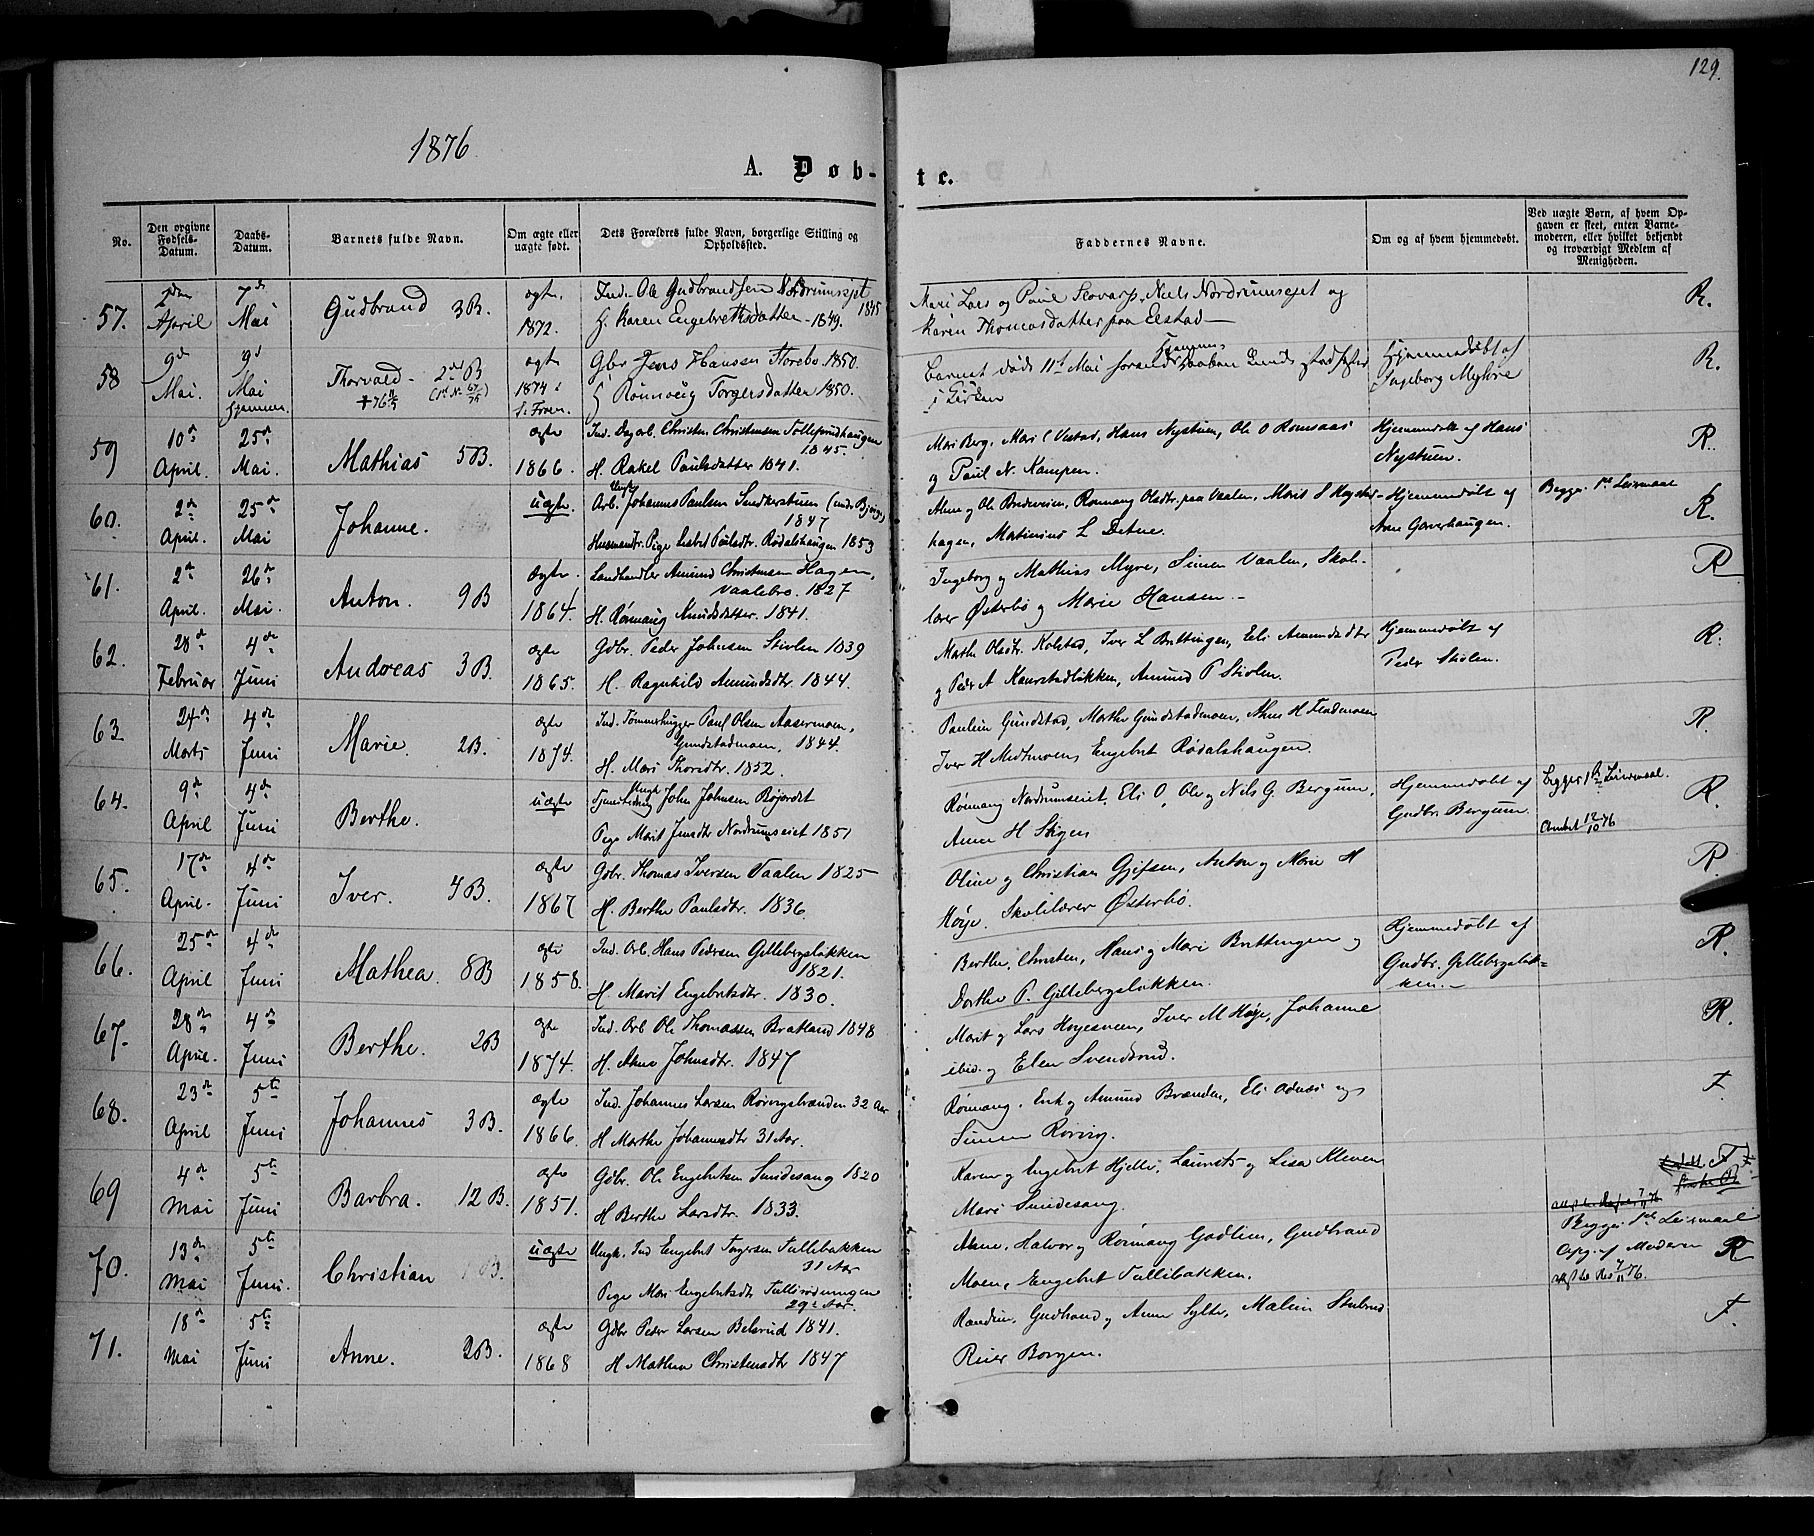 129.
1876
A. Døb-
te.
No.
Den opgivne Fødsels-Datum.
Daabs-Datum.
Barnets fulde Navn.
Om ægte eller uægte født.
Dets Forældres fulde Navn, borgerlige Stilling og Opholdssted.
Faddernes Navne.
Om og af hvem hjemmedøbt.
Ved uægte Børn, af hvem Opgaven er skeet, enten Barnemoderen, eller hvilket bekjendt og troværdigt Medlem af Menigheden.
57. 2den April 7de Mai Gudbrand 3B. ægte. 1872.
Ind. Ole Gudbrandsen Nordrumsejet 1845
H. Karen Engebretsdatter 1849.
Mari Lars og Paul Niels Nordrumsejet og
Karen Thomasdatter paa Elstad
R.
58 9de Mai. 9de Mai hjemme. Thorvald 2den B ægte 1874 i
Gbr Jens Hansen Storebo. 1850.
H Rønnoug Torgersdatter 1850.
Barnet døde 11te Mai
i Kirken
Hjemmedøbt af
Ingeborg Myhre
R.
59 10de April. 25de Mai. Mathias 5B. ægte 1866.
Ind. Dagarb. Christen Christensen Tollefsrudhaugen
1845.
H. Rakel Paulsdatter 1841.
Mari Berg, Mari C Vestad, Hans Nystuen, Ole O Romsaas
og Paul N. Kampen.
Hjemmedøbt af Hans
Nystuen.
R.
60. 2de April. 25de Mai Johanne. uægte.
Arb. Ungk. Johannes Paulsen
1847
Husmandsdtr. Pige Lisbet Paulsdtr. Rødalshaugen 1853
hagen, Martinius L
Hjemmedøbt af
Begge 1ste Leiermaal
R.
61. 2de April. 26de Mai. Anton. 9B ægte. 1864.
Landhandler Amund Christensen Hagen,
Vaalebro. 1827
H. Rønnaug Amundsdatter. 1841.
Ingeborg og Mathias Myre, Simen Vaalen, Skole-
lærer Østerbø og Marie Hansen.
R
62. 28de Februar 4de Juni Andreas 3B. ægte 1865.
Gdbr. Peder Johnsen Stivlen 1839
H. Ragnhild Amundsdtr. 1844.
Marthe Olsdtr. Kolstad, Iver L Brettingen, Eli Amundsdtr
og Peder A Kanrstadløkken, Amund P Stivlen.
Hjemmedøbt af
Peder Stivlen.
R.
63 24de Marts 4de Juni Marie. 2B. ægte 1874.
Ind. Tømmerhugger Paul Olsen Aasermoen,
Gundstadmoen, 1844.
H. Mari Thorsdtr. 1852.
Pauline Gundstad, Marthe Gundstadmoen, H
Iver H Midtmoen, Engebret Rødalshaugen.
R.
64. 9de April 4de Juni Berthe. uægte
Ungk. Tjenestedreng John Johnsen
Pige Marit Jensdtr Nordrumseiet 1851
Rønnaug Nordrumseiet, Eli O, Ole og Nels G Bergum,
Anne H Stigen
Hjemmedøbt af
Gudbr. Bergum.
Begges 1ste Leiermaal.
12/10 76
R.
65. 17de April. 4de Juni Iver. 4B. ægte 1867
Gdbr. Thomas Iversen Vaalen 1825
H. Berthe Paulsdtr. 1836.
Oline og Christian Gjefsen, Anton og Marie H
Høye. Skolelærer Østerbø.
R
66. 25de April 4de Juni Mathea. 8B ægte 1858.
Ind. Arb. Hans Pedersen Gillebergsløkken
1821.
H. Marit Engebretsdtr. 1830.
Berthe, Christen, Hans og Mari Brettingen og
Dorthe P. Gillebergsløkken.
Hjemmedøbt af
Gudbr. Gillebergsløk-
ken.
R.
67. 28de April. 4de Juni Berthe. 2B ægte 1874.
Ind. Arb Ole Thomassen Bratland 1848
H. Johnsdtr. 1847
Marit og Lars Høyesveen, Iver M Høye, Johanne
ibid. og Elen Svendsrud.
R.
68. 23de April 5te Juni Johannes 3B. ægte 1866.
Ind. Johannes Larsen 32 Aar
H Marthe Johannesdtr 31 Aar.
Rønnaug, Erik og Amund Brænden, Eli Odnæs og
Simen
F.
69 4de Mai 5te Juni Barbra. 12 B. ægte 1851.
Gdbr. Ole Engebretsen Sundesang 1820
H Berthe Larsdtr. 1833.
Karen og Engebret Hjelle, Laurits og Lisa Kleven
Mari Sundesang.
F
70. 13de Mai 5te Juni. Christian B. uægte
Ungk. Ind Engebret Tullebakken
31 Aar
Pige Mari Engebretsdtr
29 Aar.
Halvor og Rønnaug Godlien, Gudbrand
Moen, Engebret Tullibakken.
Begge 1ste Leiermaal
Opg. af Moderen
R
71. 18de Mai 5te Juni Anne. 2B. ægte 1868
Gdbr Peder Larsen Belsrud 1841.
H Mathea Christensdtr 1847
Randine, Gudbrand og Anne Sylte, Malene
Reier Borgen.
F.